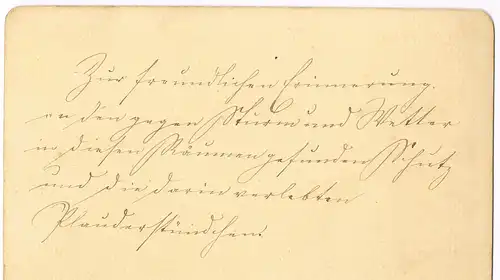 Zur freundlichen Erinnerung.
an den gegen Sturm und Wetter
in diesen Räumen gefundenen Schutz
und die darin verlebten
Plauderstündchen.